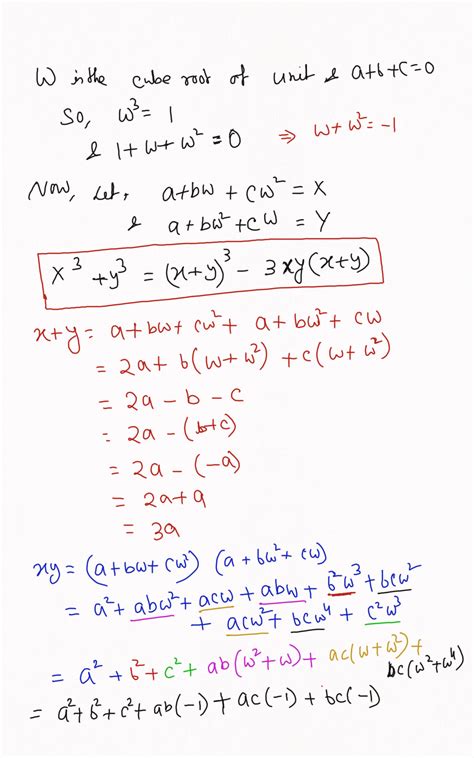 W is the cube root of unit & a+b+c=0
So, ω³ = 1
& 1+ω+ω² = 0 ⇒ ω+ω² = -1
Now, Let, a+bω + cω² = X
& a+bω²+cω = Y
x³ + y³ = (x+y)³ - 3xy(x+y)
x+y = a+bω+cω²+ a+bω²+cω
= 2a+ b(ω+ω²) +c(ω+ω²)
= 2a - b - c
= 2a - (b+c)
= 2a - (-a)
= 2a+a
= 3a
xy = (a+bω+cω²) (a+bω²+cω)
= a²+abω²+acω+abω+b²ω³+bcω²
+ acω²+bcω⁴+c²ω³
= a²+b²+c²+ab(ω²+ω)+ac(ω+ω²)+
bc(ω²+ω⁴)
= a²+b²+c²+ab(-1)+ac(-1)+bc(-1)